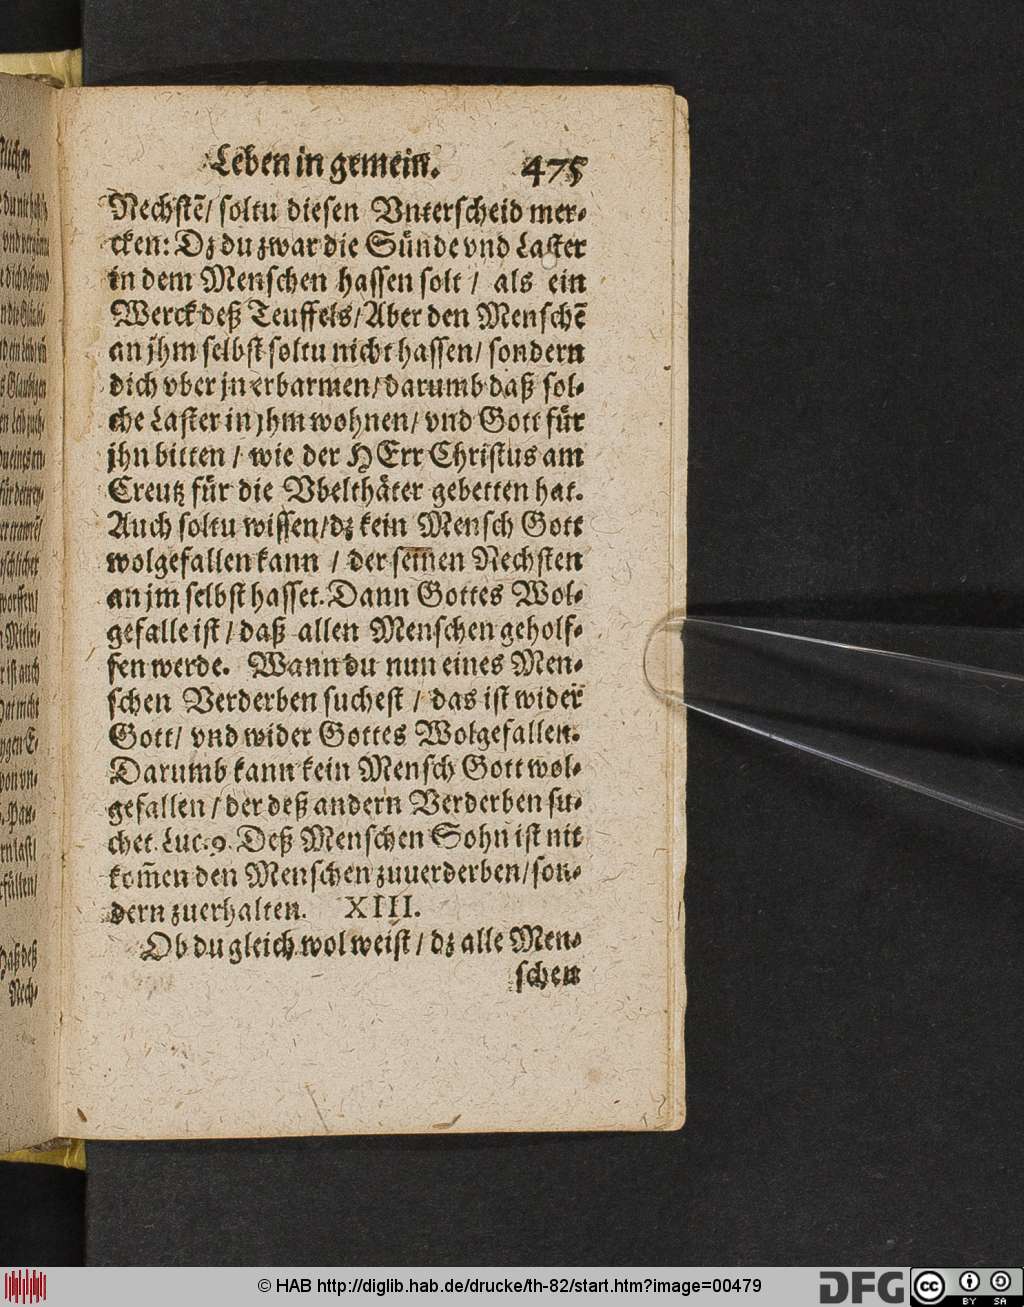 Leben in gemein. 475
Nechstẽ/ soltu diesen Vnterscheid mer-
cken: Dz du zwar die Sünde vnd Laster
in dem Menschen hassen solt / als ein
Werck deß Teuffels/ Aber den Menschẽ
an jhm selbst soltu nicht hassen/ sondern
dich vber jn erbarmen/ darumb daß sol-
che Laster in jhm wohnen/ vnd Gott für
jhn bitten / wie der HErr Christus am
Creutz für die Vbelthäter gebetten hat.
Auch soltu wissen/ dz kein Mensch Gott
wolgefallen kann / der seinen Nechsten
an jm selbst hasset. Dann Gottes Wol-
gefalle ist / daß allen Menschen geholf-
fen werde. Wann du nun eines Men-
schen Verderben suchest / das ist wider
Gott/ vnd wider Gottes Wolgefallen.
Darumb kann kein Mensch Gott wol-
gefallen / der deß andern Verderben su-
chet. Luc. 9. Deß Menschen Sohn ist nit
kom̃en den Menschen zuuerderben/ son-
dern zuerhalten. XIII.
Ob du gleich wol weist / dz alle Men-
schen
© HAB http://diglib.hab.de/drucke/th-82/start.htm?image=00479
DFG
cc
BY SA